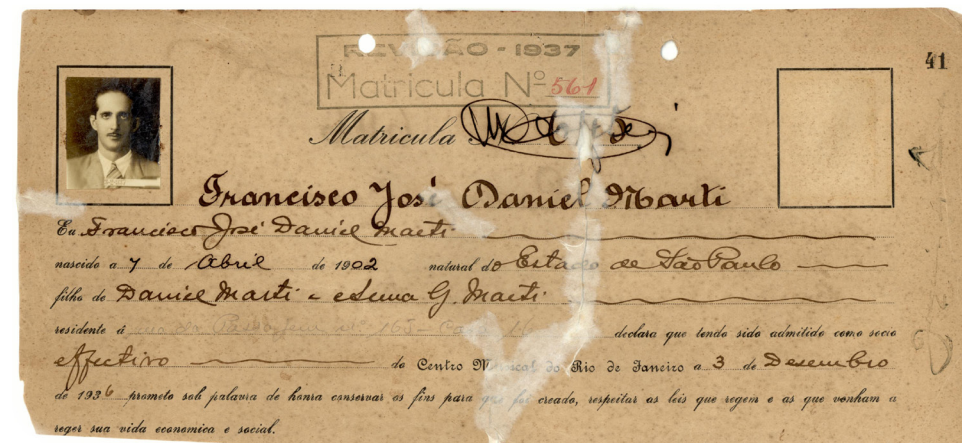 REVISÃO - 1937
41
Matricula Nº 561
Matricula
Francisco José Daniel Marti
Eu Francisco José Daniel Marti
nascido a 7 de Abril de 1902 natural do Estado de São Paulo
filho de Daniel Marti e G. Marti
residente á 165 declara que tendo sido admittido como socio
effectivo do Centro Musical do Rio de Janeiro a 3 de Desembro
de 1936 prometo sob palavra de honra conservar os fins para que foi creado, respeitar as leis que regem e as que venham a
reger sua vida economica e social.